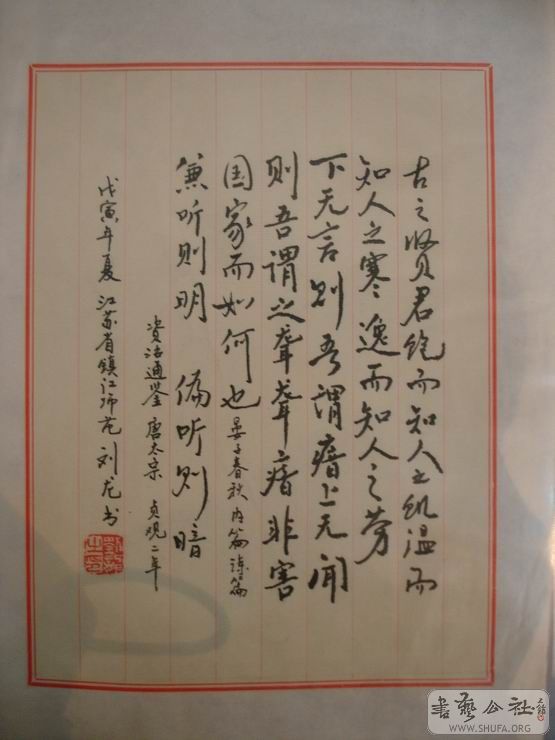 古之贤君饱而知人之饥温而
知人之寒逸而知人之劳
下无言则吾谓瘖上无闻
则吾谓之聋聋瘖非害
国家而如何也 晏子春秋内篇谏篇
兼听则明 偏听则暗
资治通鉴 唐太宗 贞观二年
戊寅年夏 江苏省镇江师范 刘龙书
書藝公社
WWW.SHUFA.ORG